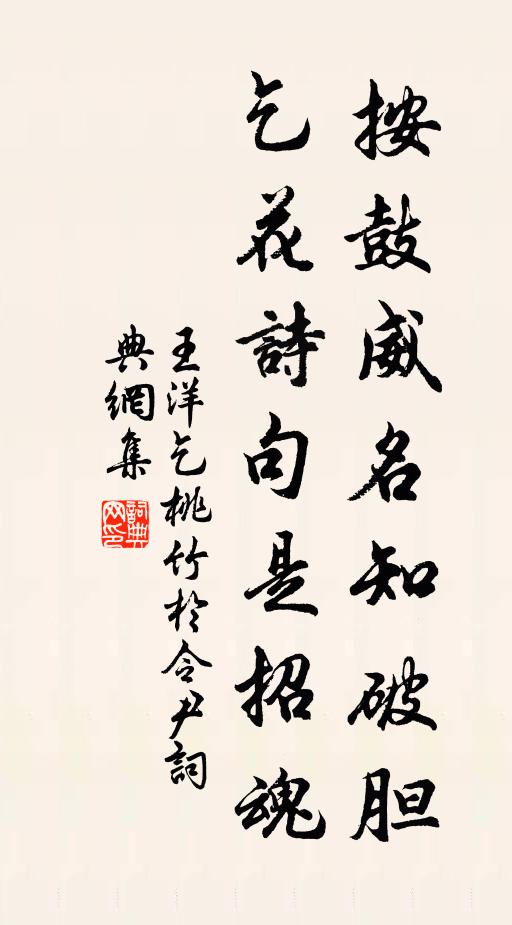 按鼓威名知破胆
乞花詩句是招魂
王洋乞桃竹於令尹詞
典網集
詞典网印